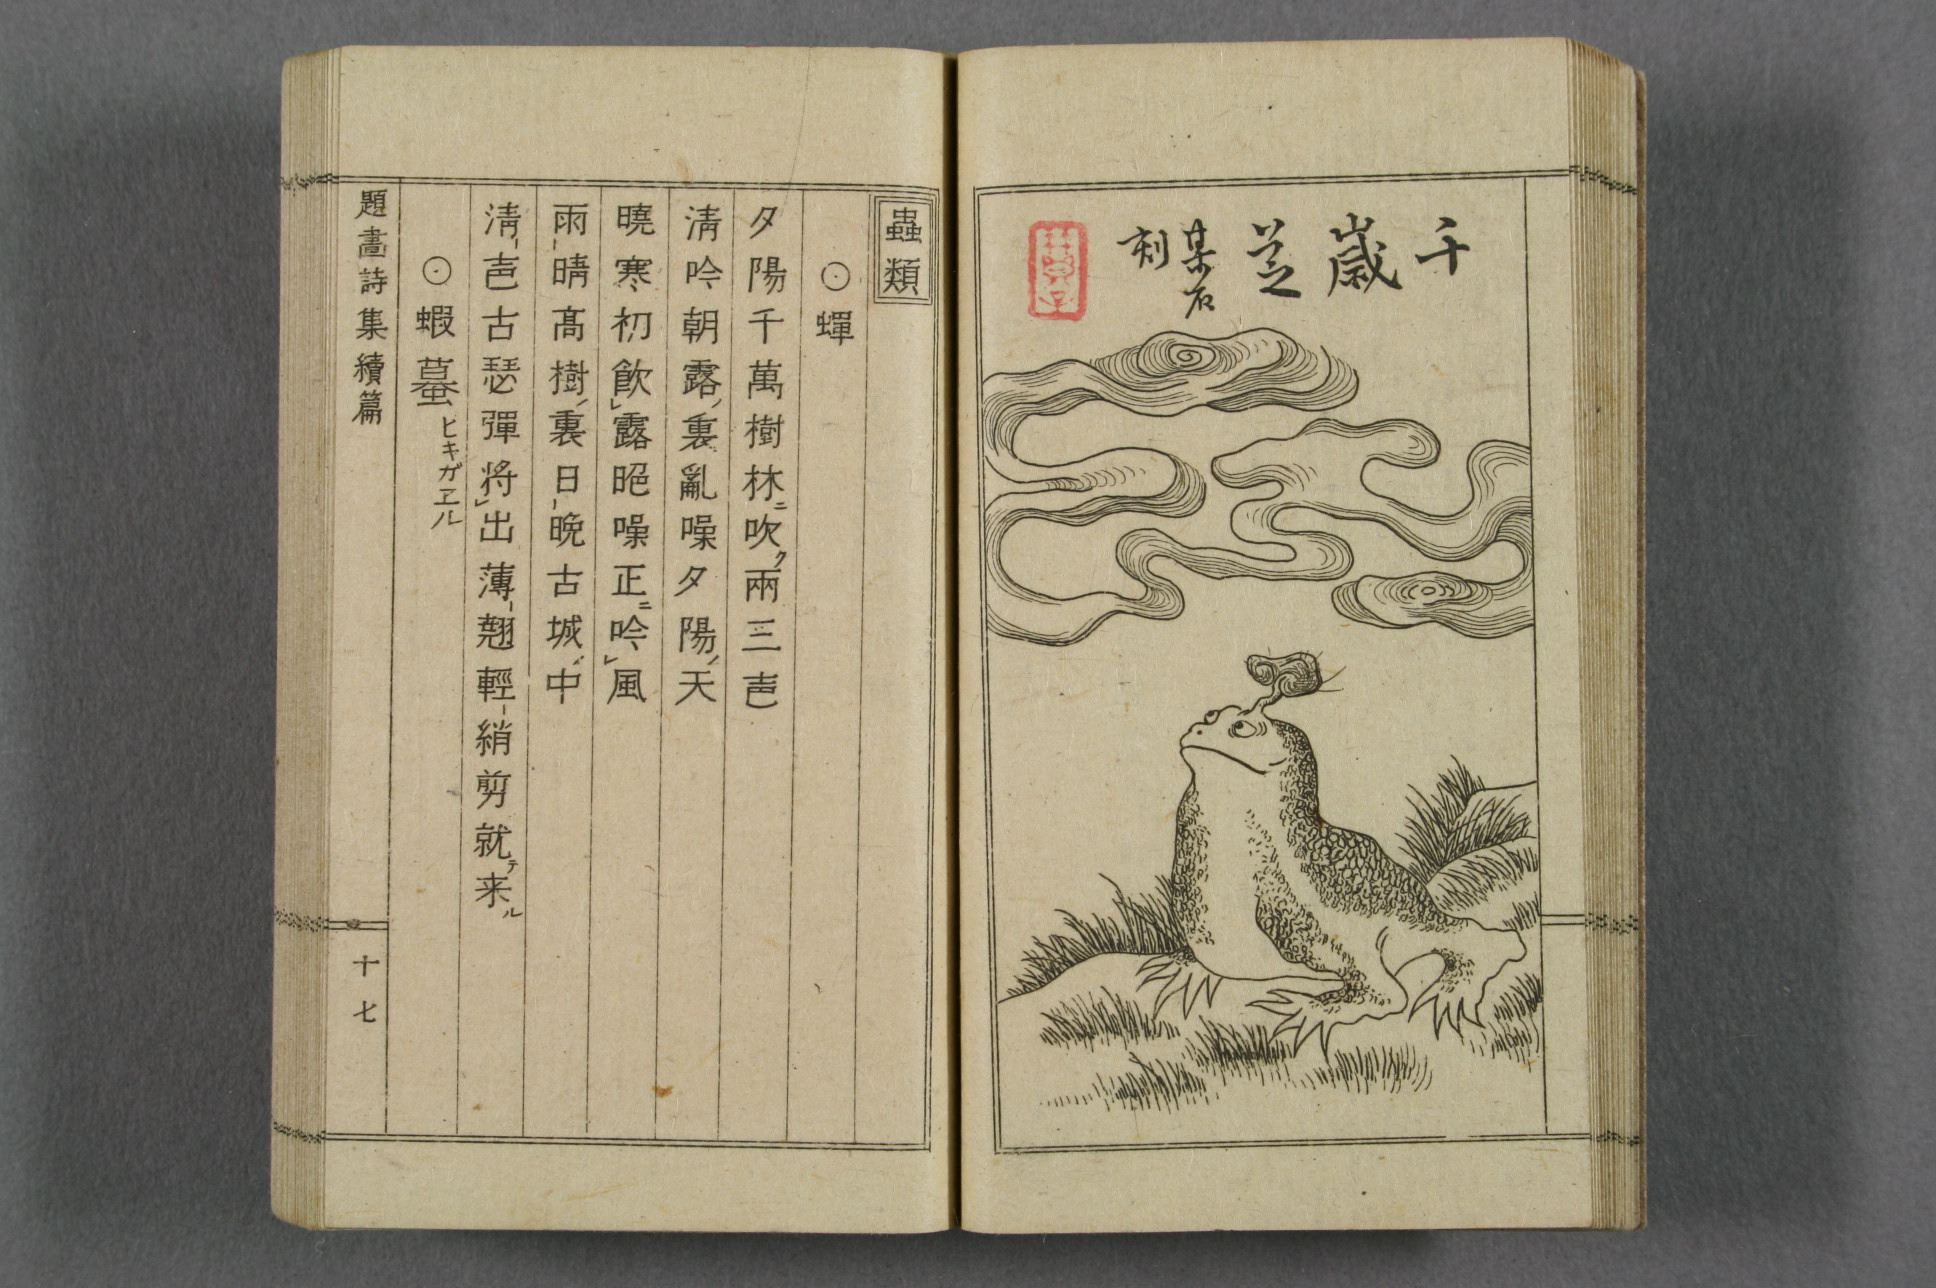 千嵗芝
某石
刻
蟲類
⊙蟬
夕陽千萬樹林ニ吹ク兩三声
清吟朝露ノ裏亂噪夕陽ノ天
曉寒初飮レ露晩噪正ニ吟レ風
雨-晴髙樹ノ裏日-晩古城ノ中
清-声古瑟彈将レ出薄-翅輕-綃剪就テ来ル
⊙蝦蟇ヒキガエル
題畫詩集續篇
十七